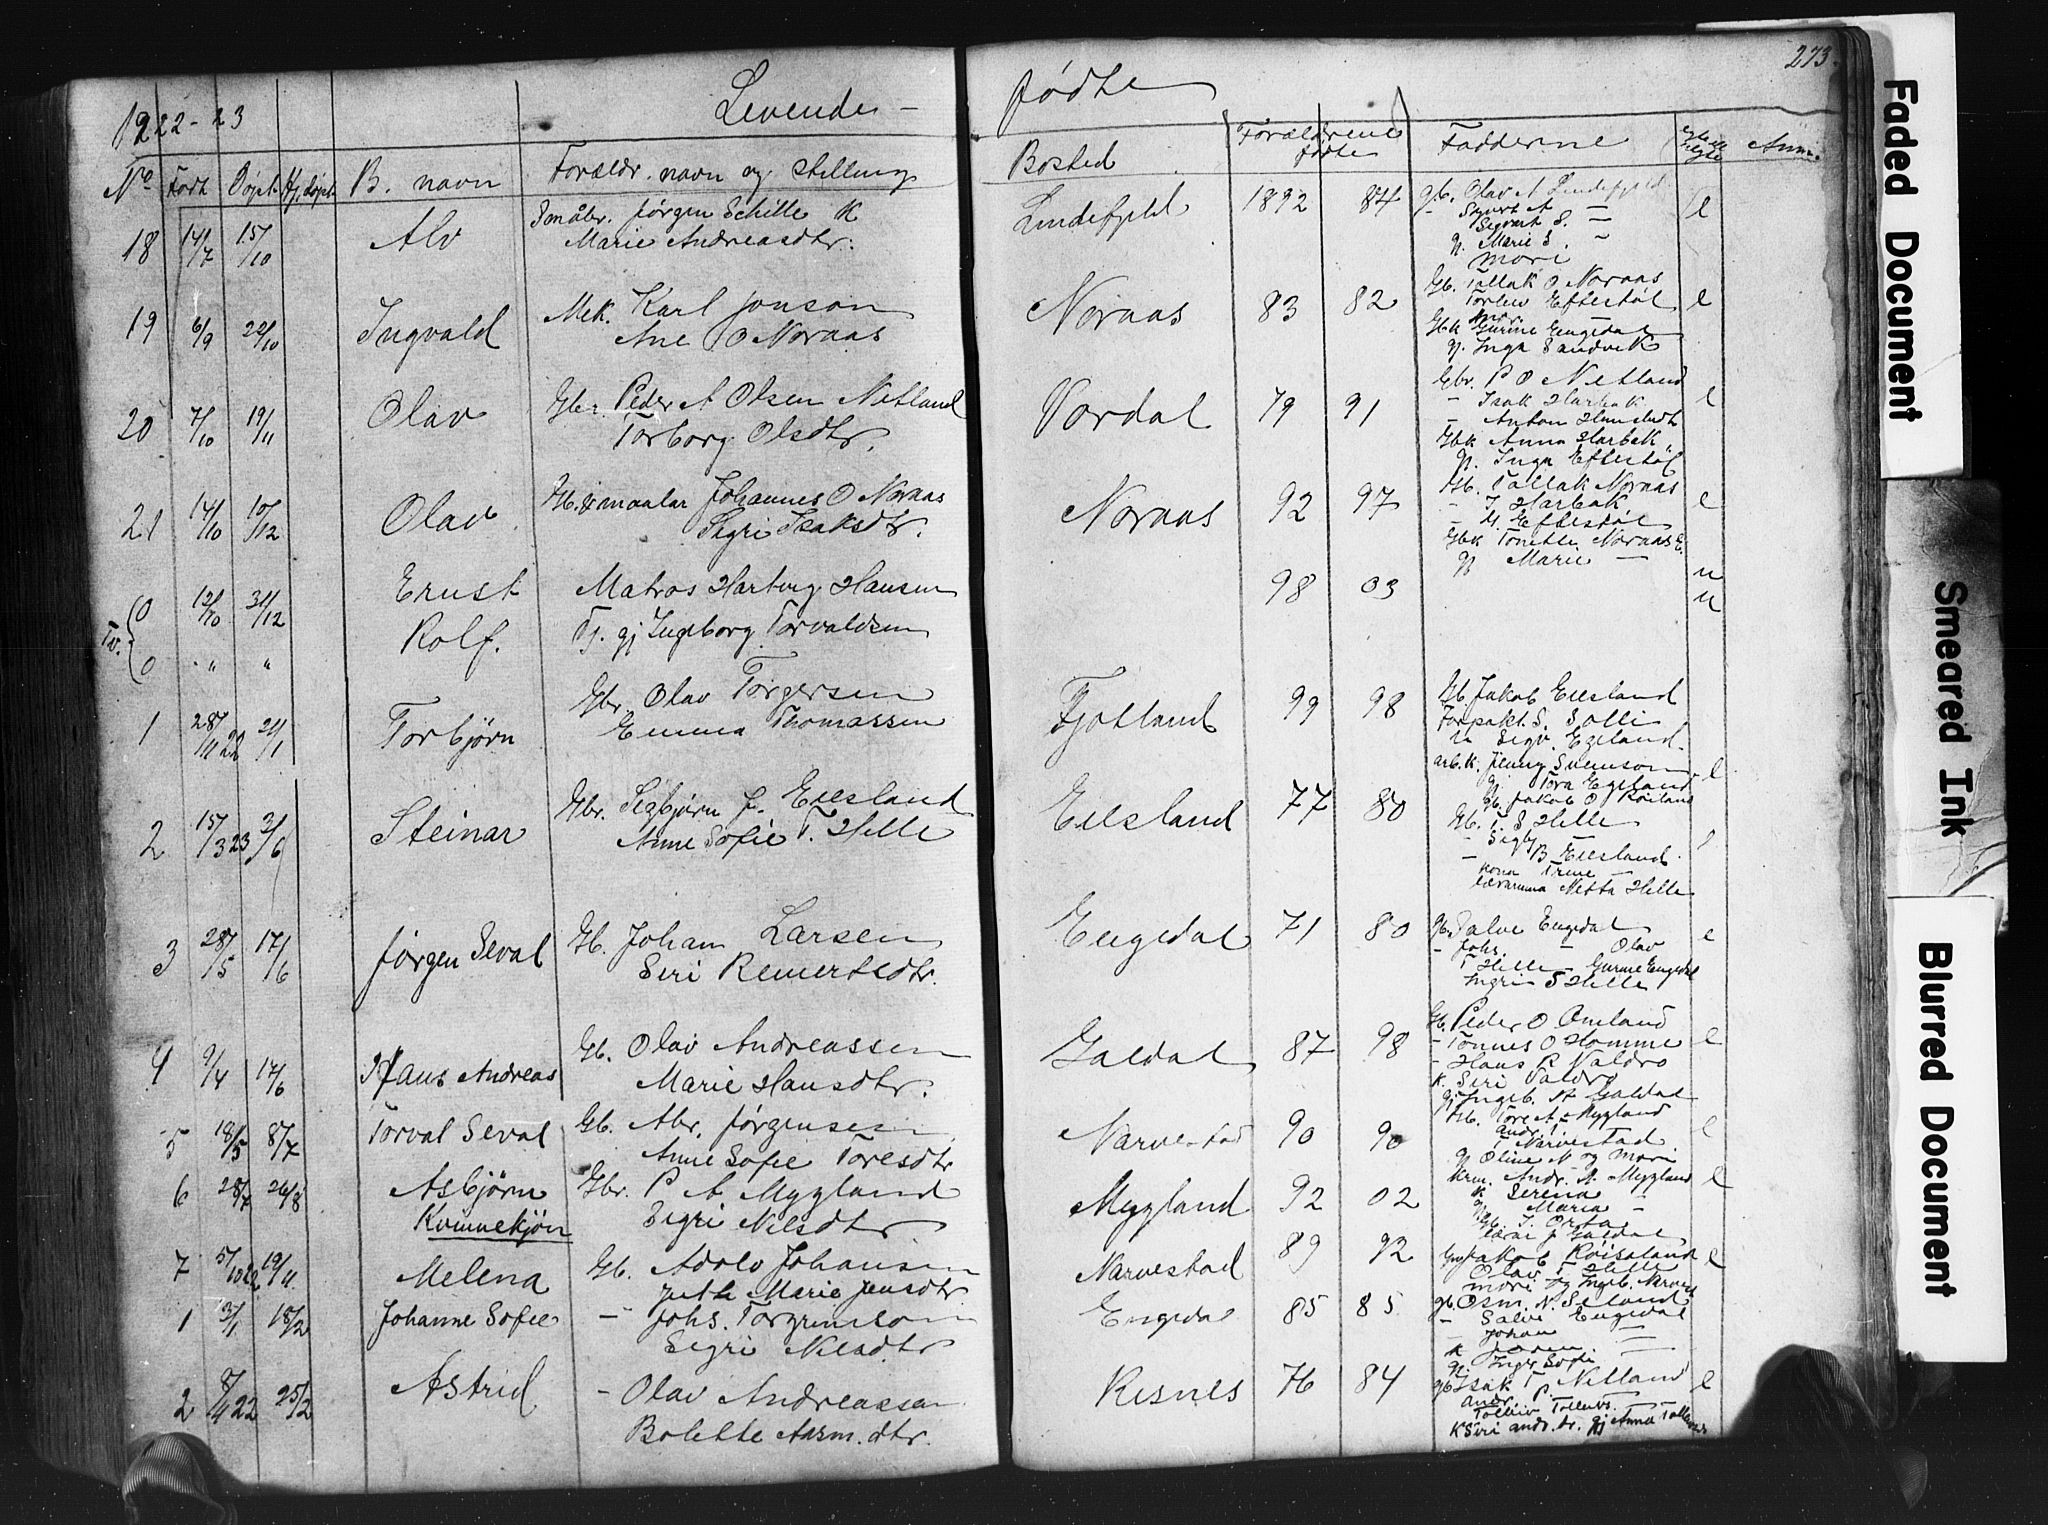 273.
1922-23 Levende - fødte
No Født Døpt Hj.døpt B. navn Forældr. navn og stilling Bosted Forældrene fødte Fadderne Anm.
18 14/7 15/10 Alv Småbr. Jørgen Schille K Lindefjeld 1892 84 gb. Olav A Lindefjeld e
Marie Andreasdtr. Sigurt A —
Sigvart S. —
g. Marie S. —
mori
19 6/9 22/10 Ingvald Mek. Karl Jonson Noraas 83 82 Gb. Tallak O Noraas e
Ane O Noraas Torleiv Eftestøl
Gbk Gurine Engedal
g. Inga Sandvik
20 7/10 19/11 Olav Gbr. Peder A Olsen Netland Vordal 79 91 Gbr. P O Netland e
Torborg Olsdtr. - Isak Harbak
- Anton Homstedt
Gbk Anna Harbak
g. Inga Eftestøl
21 14/10 10/12 Olav Gb. & maalar Johannes O Noraas Noraas 92 97 Gb. Tallak Noraas e
Sigri Isaksdtr. - I Harbak
- Eftestøl
Gbk Tonette Noraas
g Marie —
Tv. 0 12/10 31/12 Ernst Matros Hartvig Hansen 98 03 u
0 " " Rolf. Tj. gj Ingeborg Torvaldsen u
1 28/11 22 21/1 Torbjørn Gbr. Olav Torgersen Fjotland 99 98 Gb Jakob Eiesland
Emma Thomassen Forpakt. S. Solli
Sigv. Egeland.
arb.k. Jenny Svenson e
gj Tora Egeland
2 15/3 23 3/6 Steinar Gbr. Sigbjørn J. Eiesland Eiesland 77 80 Gb. Jakob O Røiland
Anne Sofie T. Helle Gb. T. S Helle
- Sigbj
- B Eiesland
kona Trine —
Netta Helle
3 28/5 17/6 Jørgen Seval Gb. Johan Larsen Engedal 71 80 Gb. Salve Engedal e
Siri Reinertsdtr. - Johs. — Olav
T Helle - Gurine Engedal
Ingri S Helle
4 9/4 17/6 Hans Andreas Gb. Olav Andreassen Galdal 87 98 Gb. Peder O Omland
Marie Hansdtr. - Tønnes O Homme e
- Hans R Valdro
k. Siri Valdro
gj Ingeb. A Galdal
5 18/5 8/7 Torval Seval Gb. Abr. Jørgensen Narvestad 90 90 Gb. Tore A. Mygland e
Anne Sofie Toresdtr andr. T.
T Narvestad
g Oline N og mori
6 28/7 26/8 Asbjørn Gbr. P A Mygland Mygland 92 02 Krm. Andr. A. Mygland e
Kvinnekjøn Sigri Nilsdtr K Serena
g Maria —
7 5/10 22 19/11 Melena Gb. Adolv Johansen Narvestad 89 92 Jakob Røisaland e
Marie Jensdtr Olav T Helle
mori og Ingeb. Narvest
1 3/1 18/2 Johanne Sofie — Johs. Torgrimson Engedal 85 85 gb. Osm. N. Seland
Sigri Nilsdtr - Salve Engedal
- Johan —
k Joren —
g. Inger Sofi
2 8/4 22 25/2 Astrid — Olav Andreassen Risnes 76 84 gb Isak T. P. Netland e
Bolette Aasm.dtr. Andr.
Tolleiv Tollevs. —
K Siri andr. dr. gj Anna Tollevs
Faded Document
Smeared Ink
Blurred Document